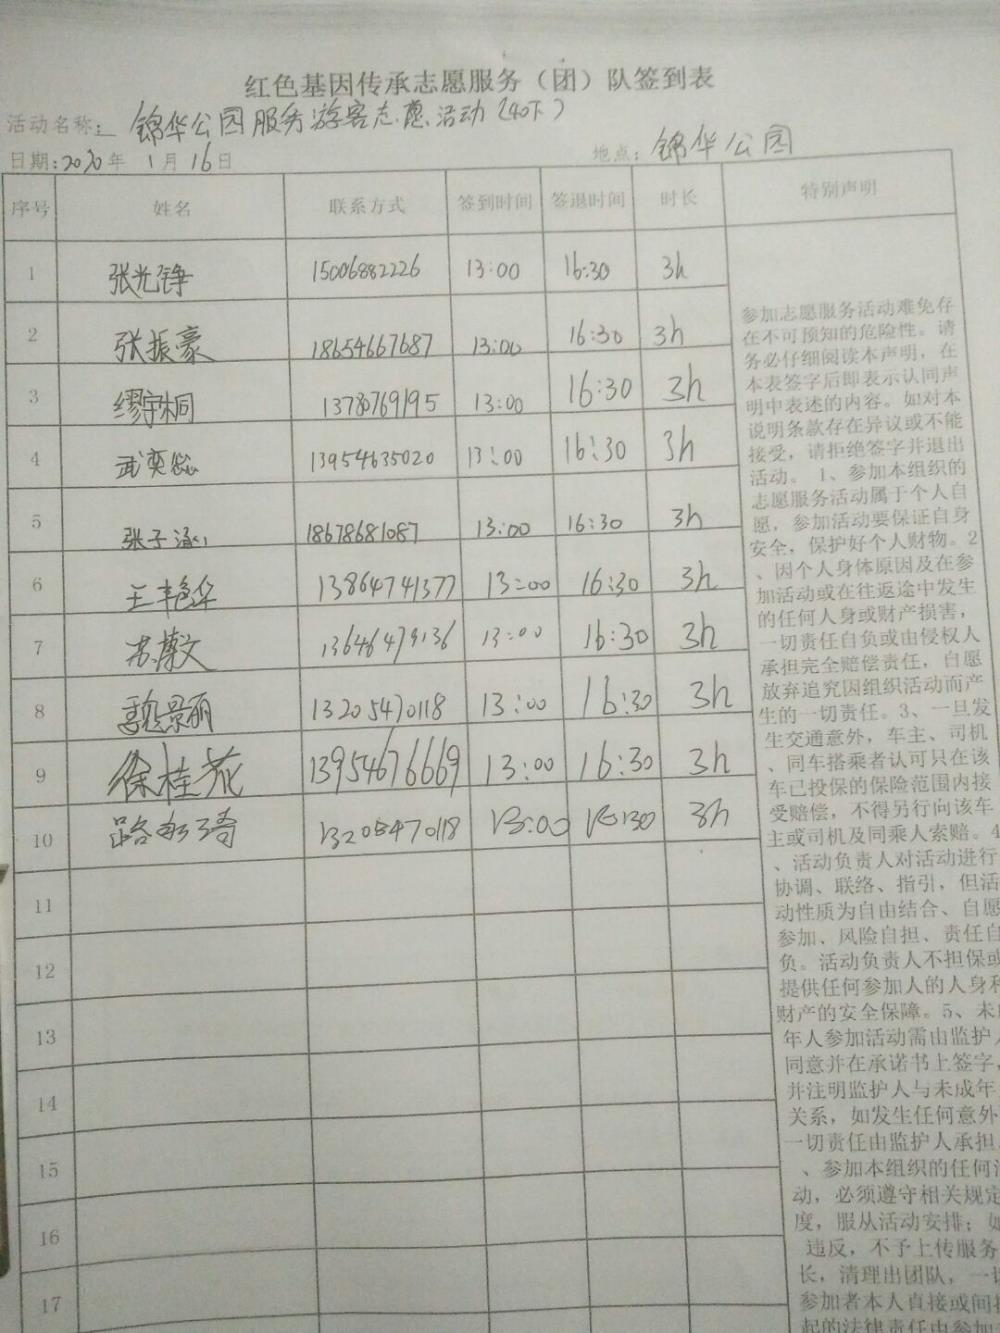 红色基因传承志愿服务（团）队签到表
活动名称： 锦华公园服务游客志愿活动（40下）
日期：2020年 1月16日 地点：锦华公园
序号 姓名 联系方式 签到时间 签退时间 时长 特别声明
1 张光铮 15006882226 13:00 16:30 3h
2 张振豪 18654667687 13:00 16:30 3h
3 缪宇桐 13780769195 13:00 16:30 3h
4 武奕 13954635020 13:00 16:30 3h
5 张子涵 18678681087 13:00 16:30 3h
6 王艳华 13864741377 13:00 16:30 3h
7 苏文 13646479136 13:00 16:30 3h
8 魏景丽 13205470118 13:00 16:30 3h
9 徐桂花 13954676669 13:00 16:30 3h
10 路 13205470118 13:00 16:30 3h
11
12
13
14
15
16
17
参加志愿服务活动难免存
在不可预知的危险性。请
务必仔细阅读本声明，在
本表签字后即表示认同声
明中表述的内容。如对本
说明条款存在异议或不能
接受，请拒绝签字并退出
活动。 1、参加本组织的
志愿服务活动属于个人自
愿，参加活动要保证自身
安全，保护好个人财物。2
、因个人身体原因及在参
加活动或在往返途中发生
的任何人身或财产损害，
一切责任自负或由侵权人
承担完全赔偿责任，自愿
放弃追究因组织活动而产
生的一切责任。3、一旦发
生交通意外，车主、司机
、同车搭乘者认可只在该
车已投保的保险范围内接
受赔偿，不得另行向该车
主或司机及同乘人索赔。4
、活动负责人对活动进行
协调、联络、指引，但活
动性质为自由结合、自愿
参加、风险自担、责任自
负。活动负责人不担保或
提供任何参加人的人身和
财产的安全保障。5、未
年人参加活动需由监护人
同意并在承诺书上签字，
并注明监护人与未成年
关系，如发生任何意外
一切责任由监护人承担
、参加本组织的任何活
动，必须遵守相关规定
度，服从活动安排；如
违反，不予上传服务
长，清理出团队，一切
参加者本人直接或间接
起的法律责任由参加